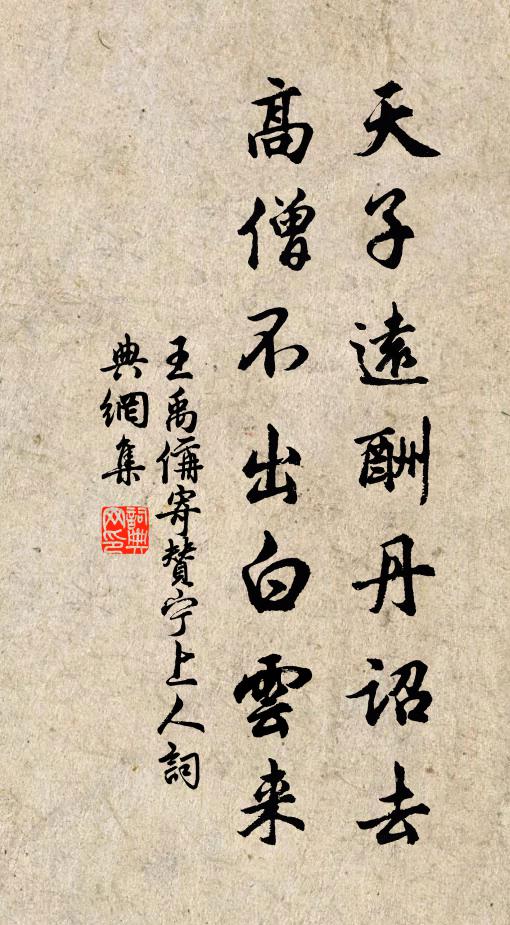 天子遠酬丹詔去
高僧不出白雲来
王禹偁寄贊宁上人詞
典網集
詞典网印